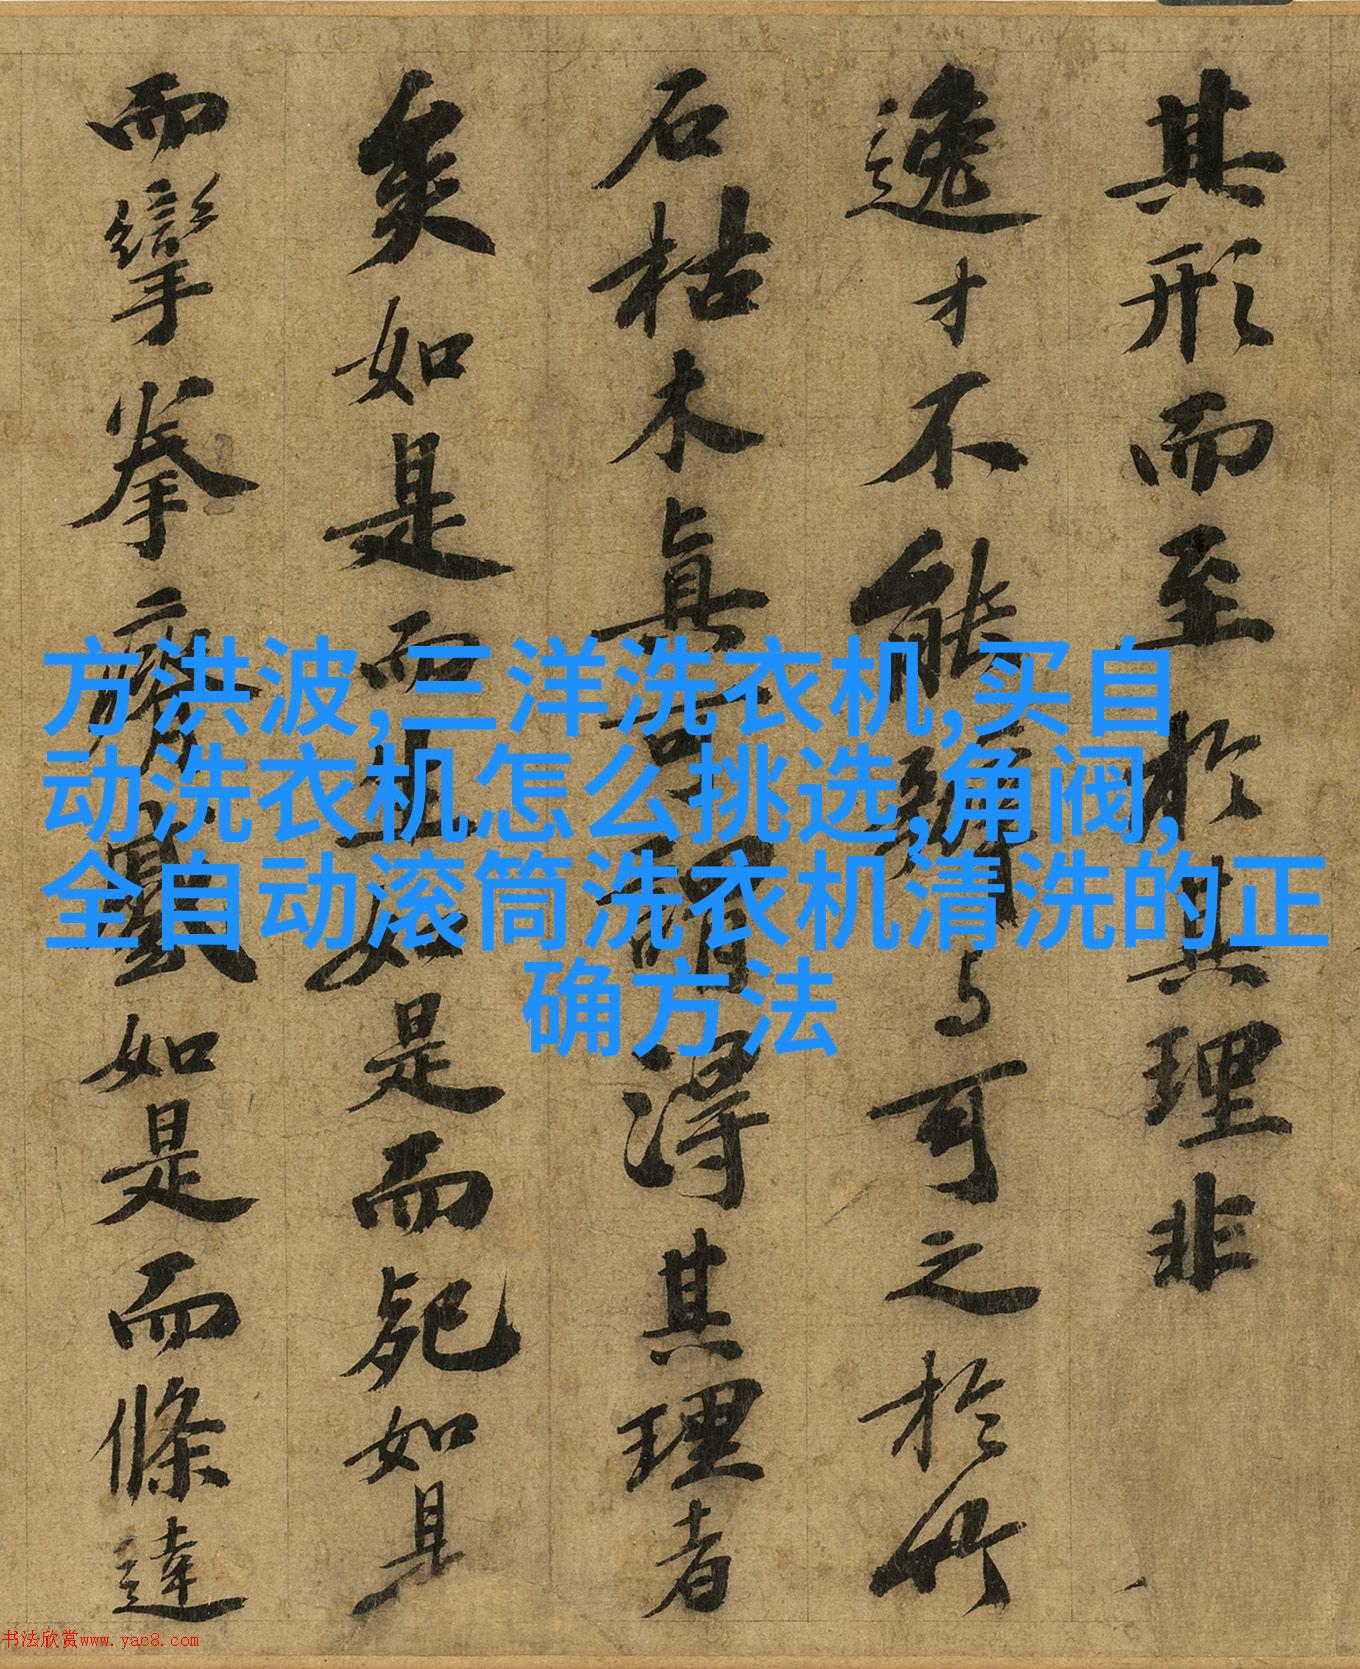 其形而至於其理非
逸才不能辨与可之於竹
石枯木眞可謂得其理者
矣如是而生如是而死如是
而攣拳瘠蹙如是而條達
方洪波,三洋洗衣机,买自
动洗衣机怎么挑选,角阀,
全自动滚筒洗衣机清洗的正
确方法
书法欣赏www.yac8.com